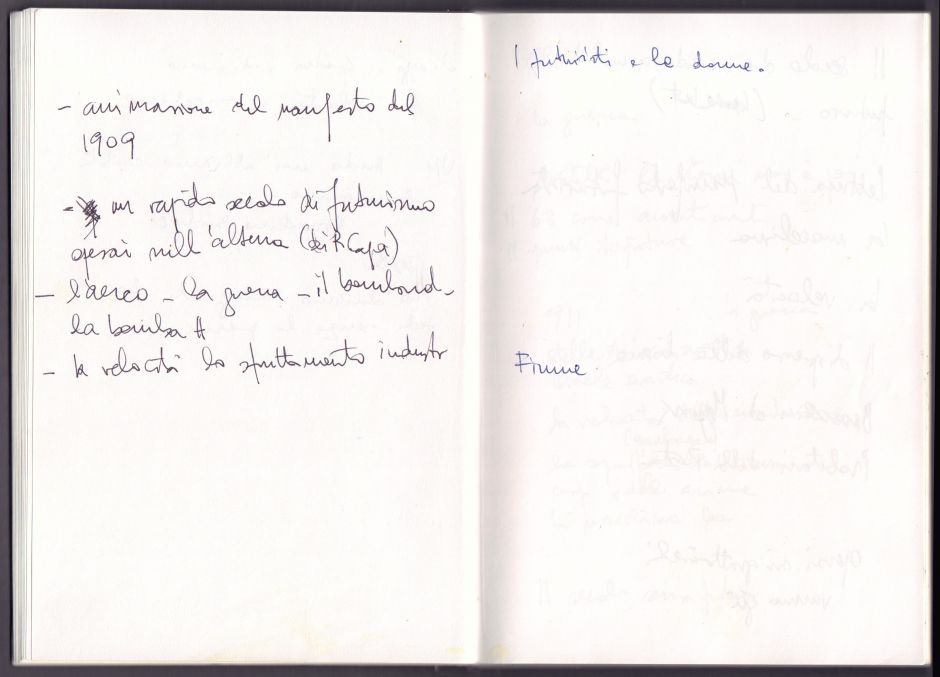 - animazione del manifesto del
1909
- un rapido secolo di futurismo
operai nell'altena (di R Capa)
- l'aereo - la guerra - il bombard-
la bomba H
- la velocità lo sfruttamento industr
I futuristi e le donne.
Fiume